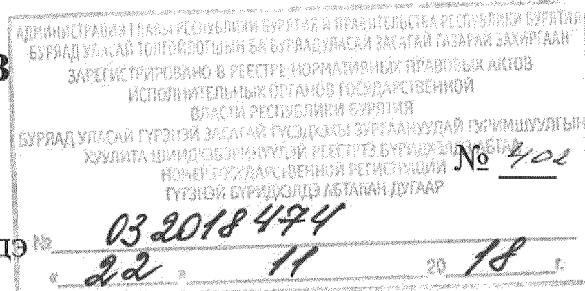 АДМИНИСТРАЦИЯ ГЛАВЫ РЕСПУБЛИКИ БУРЯТИЯ И ПРАВИТЕЛЬСТВА РЕСПУБЛИКИ БУРЯТИЯ
БУРЯАД УЛАСАЙ ТОЛГОЙЛОГШЫН БА БУРЯАД УЛАСАЙ ЗАСАГАЙ ГАЗАРАЙ ЗАХИРГААН
В
ЗАРЕГИСТРИРОВАНО В РЕЕСТРЕ НОРМАТИВНЫХ ПРАВОВЫХ АКТОВ
ИСПОЛНИТЕЛЬНЫХ ОРГАНОВ ГОСУДАРСТВЕННОЙ
ВЛАСТИ РЕСПУБЛИКИ БУРЯТИЯ
БУРЯАД УЛАСАЙ ГҮРЭНЭЙ ЗАСАГАЙ
РЕЕСТРТЭ
№ 402
НОМЕР ГОСУДАРСТВЕННОЙ РЕГИСТРАЦИИ
ГҮРЭНЭЙ БҮРИДХЭЛДЭ АБТАҺАН ДУГААР
ДЭ № 03 2018 474
« 22 » 11 20 18 г.